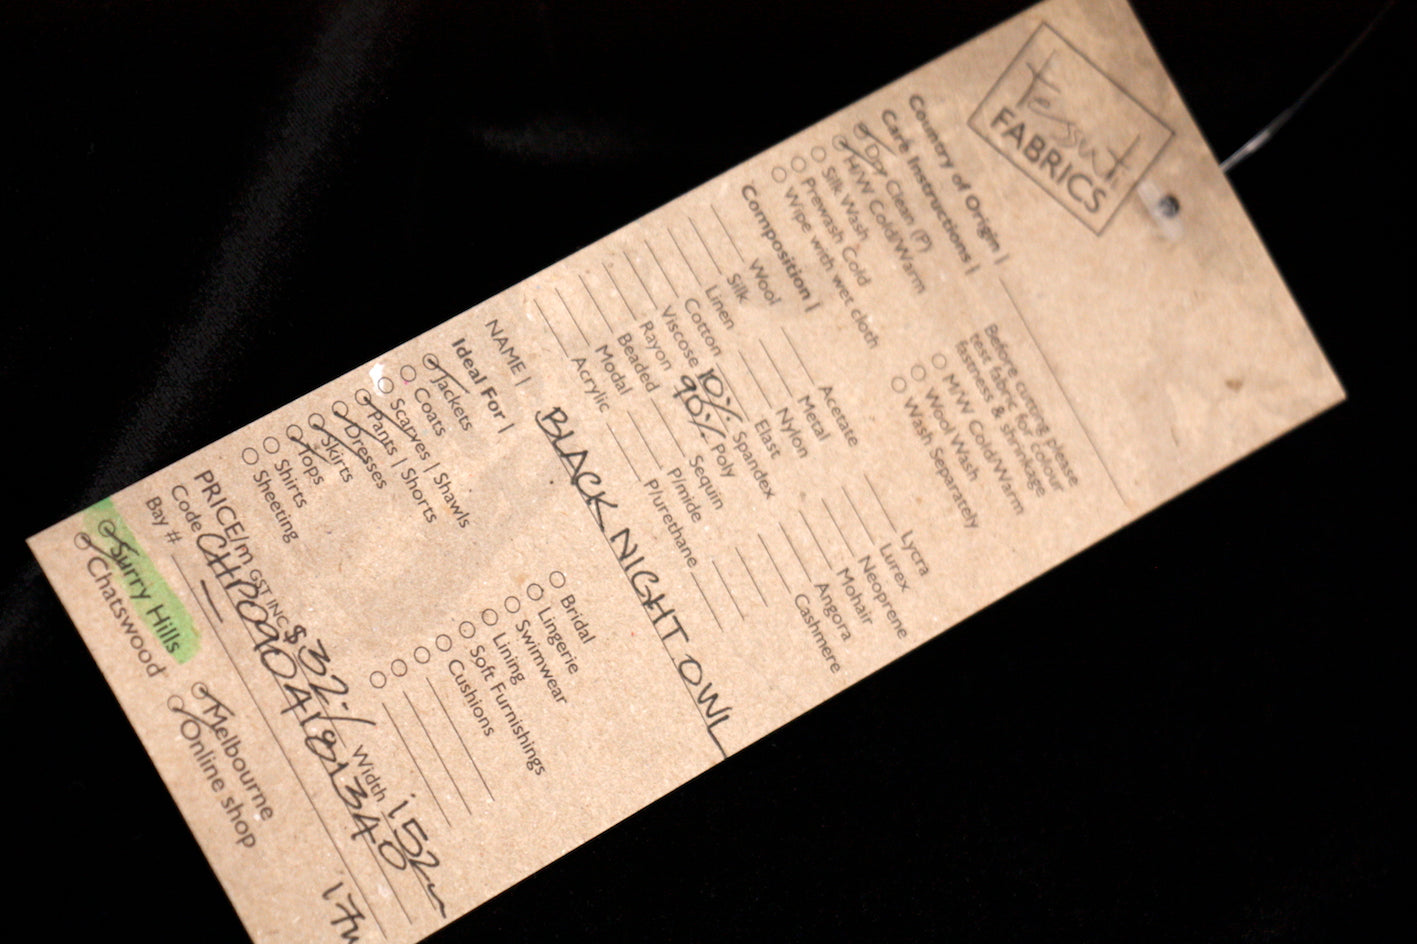 Tessuti
FABRICS
Country of Origin |
Care Instructions |
Dry Clean (P)
H/W Cold/Warm
Silk Wash
Prewash Cold
Wipe with wet cloth
Before cutting please
test fabric for colour
fastness & shrinkage
M/W Cold/Warm
Wool Wash
Wash Separately
Composition |
Wool Acetate Lycra
Silk Metal Lurex
Linen Nylon Neoprene
Cotton Elast Mohair
Viscose 10% Spandex Angora
Rayon 90% Poly Cashmere
Beaded Sequin
Modal P/mide
Acrylic P/urethane
NAME | BLACK NIGHT OWL
Ideal For |
Jackets Bridal
Coats Lingerie
Scarves | Shawls Swimwear
Pants | Shorts Lining
Dresses Soft Furnishings
Skirts Cushions
Tops
Shirts
Sheeting
PRICE/m GST INC $32.- Width 152cm
Code CHP0904181340
Bay #
Surry Hills Melbourne
Chatswood Online shop